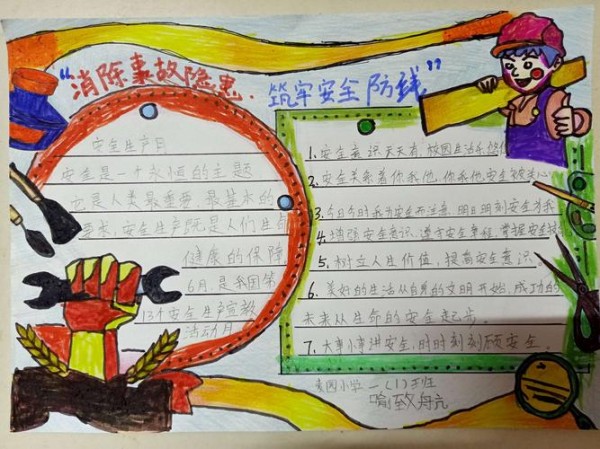 “消除事故隐患.
筑牢安全防线”
安全生产月
安全是一个永恒的主题
它是人类最重要、最基本的
要求,安全生产既是人们生命
健康的保障,
6月,是我国第
13个安全生产宣教
活动月
1、安全意识天天有,校园生活乐悠
2、安全关系着你我他,你我他安全
3、今日今时我为安全而注意,明日明刻安全为我
4、增强安全意识,遵守安全
5、树立人生价值,提高安全意识
6、美好的生活从自身的文明开始,成功的
未来从生命的安全起步。
7、大事小事讲安全,时时刻刻顾安全。
小学一(1)班
喻致舟